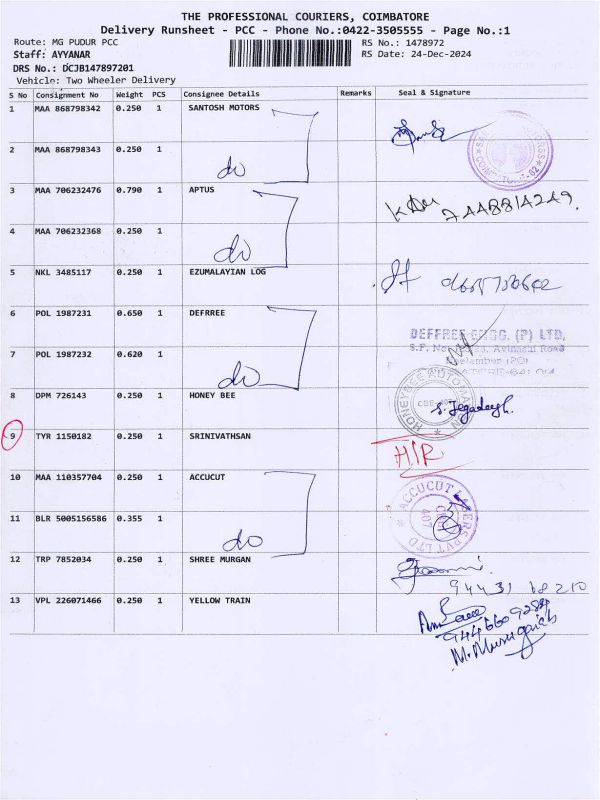 THE PROFESSIONAL COURIERS, COIMBATORE
Delivery Runsheet - PCC - Phone No.:0422-3505555 - Page No.:1
Route: MG PUDUR PCC
RS No.: 1478972
Staff: AYYANAR
RS Date: 24-Dec-2024
DRS No.: DCJB147897201
Vehicle: Two Wheeler Delivery
S No Consignment No Weight PCS Consignee Details Remarks Seal & Signature
1 MAA 868798342 0.250 1 SANTOSH MOTORS
2 MAA 868798343 0.250 1 do
3 MAA 706232476 0.790 1 APTUS
4 MAA 706232368 0.250 1 do
5 NKL 3485117 0.250 1 EZUMALAYIAN LOG
6 POL 1987231 0.650 1 DEFRREE
DEFFREE ENGG. (P) LTD,
Avinashi Road
7 POL 1987232 0.620 1 do
8 DPM 726143 0.250 1 HONEY BEE
HONEYBEE AUTOMATION
S. Jegadeesh.
9 TYR 1150182 0.250 1 SRINIVATHSAN H/R
10 MAA 110357704 0.250 1 ACCUCUT
ACCUCUT LASERS PVT LTD
11 BLR 5005156586 0.355 1 do
12 TRP 7852034 0.250 1 SHREE MURGAN
94431 18210
13 VPL 226071466 0.250 1 YELLOW TRAIN